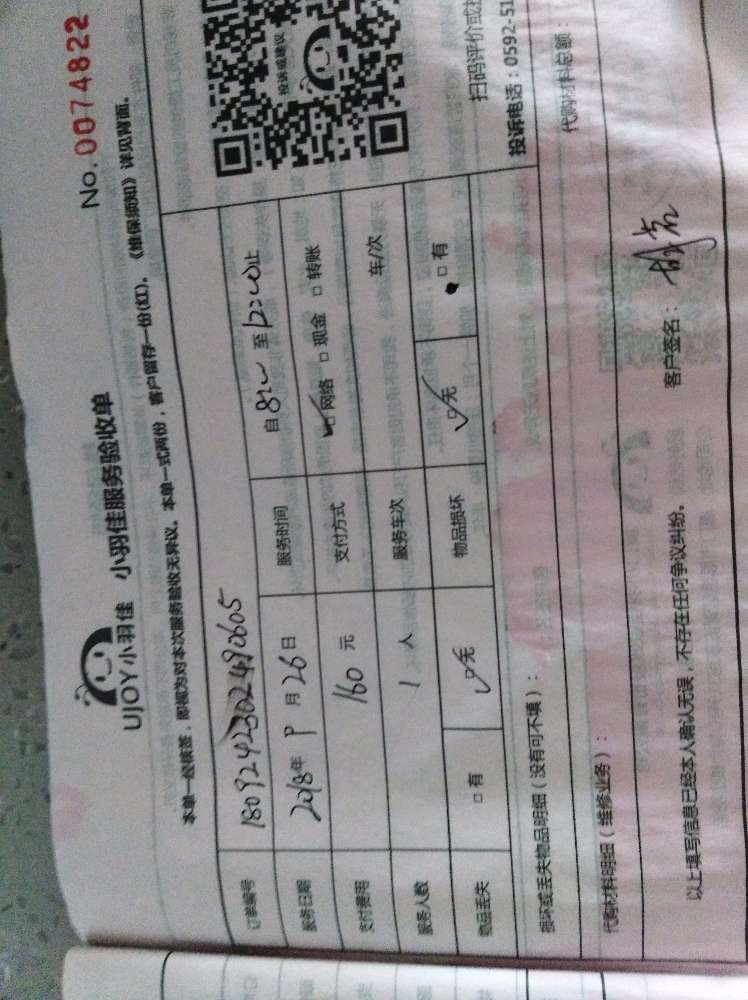 No. 0074822
UJOY小羽佳 小羽佳服务验收单
本单一经核签，即视为对本次服务验收无异议。本单一式两份，客户留存一份(红)。《维保须知》详见背面。
订单编号 1809242302490605
服务日期 2018年 9月26日 服务时间 自8:00至12:00止
支付费用 160元 支付方式 ☑网络 □现金 □转账
服务人数 1人 服务车次 车/次
物品丢失 □有 ☑无 物品损坏 ☑无 □有
投诉或建议
扫码评价或投
投诉电话：0592-51
损坏或丢失物品明细（没有可不填）：
代购材料明细（维修业务）： 代购材料总额：
以上填写信息已经本人确认无误，不存在任何争议纠纷。 客户签名：